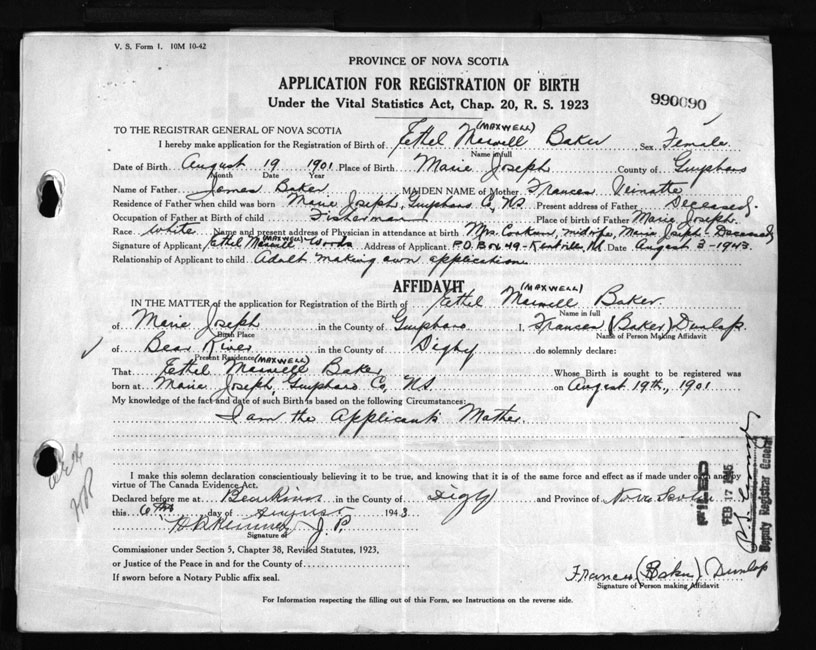 V. S. Form 1. 10M 10-42
PROVINCE OF NOVA SCOTIA
APPLICATION FOR REGISTRATION OF BIRTH
Under the Vital Statistics Act, Chap. 20, R. S. 1923
990690
TO THE REGISTRAR GENERAL OF NOVA SCOTIA
(MAXWELL)
I hereby make application for the Registration of Birth of Ethel Maxwell Baker Sex Female
Name in full
Date of Birth August 19 1901 Place of Birth Marie Joseph County of Guysboro
Month Date Year
Name of Father James Baker MAIDEN NAME of Mother Frances Veinotte
Residence of Father when child was born Marie Joseph, Guysboro Co, N.S. Present address of Father Deceased.
Occupation of Father at Birth of child Fisherman Place of birth of Father Marie Joseph.
Race white Name and present address of Physician in attendance at birth Mrs. midwife, Marie Joseph - Deceased
(MAXWELL)
Signature of Applicant Ethel Maxwell Woods Address of Applicant P.O. Box 49 - Kentville, N.S. Date August 3 - 1943.
Relationship of Applicant to child Adult making own application
AFFIDAVIT
(MAXWELL)
IN THE MATTER of the application for Registration of the Birth of Ethel Maxwell Baker.
Name in full
of Marie Joseph in the County of Guysboro I, Frances (Baker) Dunlop.
Birth Place Name of Person Making Affidavit
of Bear River in the County of Digby do solemnly declare:
Present Residence (MAXWELL)
That Ethel Maxwell Baker Whose Birth is sought to be registered was
born at Marie Joseph, Guysboro Co, N.S. on August 19th, 1901
My knowledge of the fact and date of such Birth is based on the following Circumstances:
I am the Applicant's Mother.
I make this solemn declaration conscientiously believing it to be true, and knowing that it is of the same force and effect as if made under oath and by
virtue of The Canada Evidence Act.
Declared before me at Bear River in the County of Digby and Province of Nova Scotia
this 6th day of August 1943
J.P.
Signature of
Commissioner under Section 5, Chapter 38, Revised Statutes, 1923,
or Justice of the Peace in and for the County of
If sworn before a Notary Public affix seal.
Frances (Baker) Dunlop
Signature of Person making Affidavit
For Information respecting the filling out of this Form, see Instructions on the reverse side.
FILED
FEB 17 1945
Deputy Registrar General